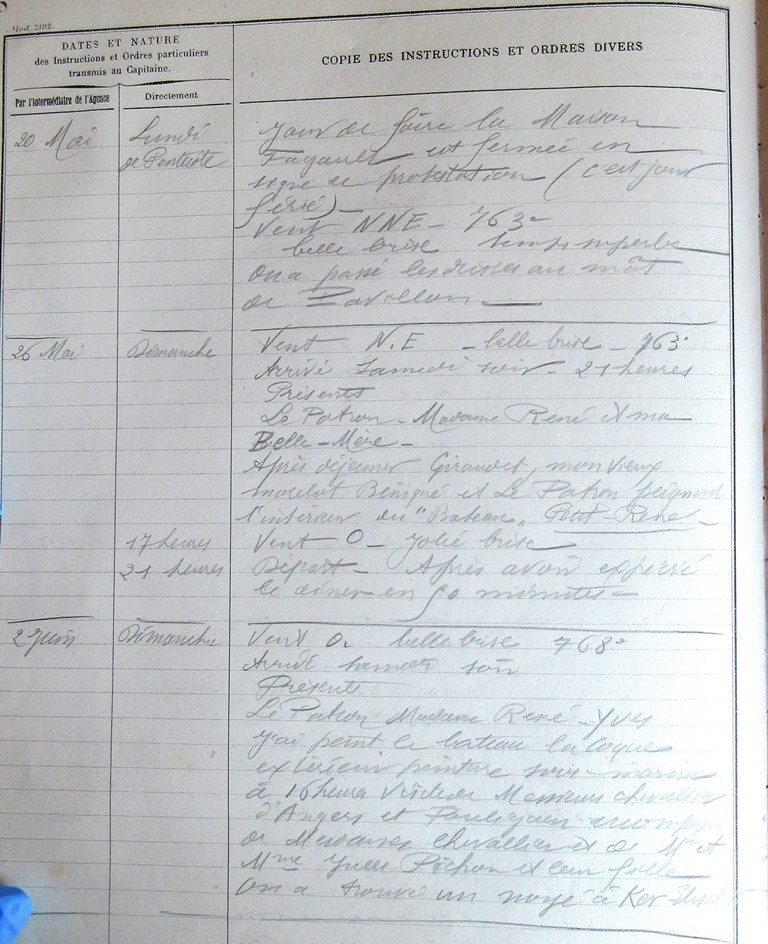 Mod. 2192.
DATES ET NATURE
des Instructions et Ordres particuliers
transmis au Capitaine.
COPIE DES INSTRUCTIONS ET ORDRES DIVERS
Par l'intermédiaire de l'Agence
Directement
20 Mai Lundi Jour de foire la Maison
de Pentecôte est fermée en
signe de protestation (c'est jour
férié) –
Vent NNE – 763
belle brise temps superbe
On a passé les drisses au mât
de Pavillon –
26 Mai Dimanche Vent N.E – belle brise – 763
Arrivé Samedi soir – 21 heures
Présents
Le Patron – Madame René et ma
Belle-Mère –
Après déjeuner Giraudet, mon vieux
matelot Bénigné et Le Patron peignent
l'intérieur du "Bateau" Petit-René –
17 heures Vent O – jolie brise
21 heures Départ – Après avoir expressé
le dîner en 50 minutes –
2 Juin Dimanche Vent O. belle brise 768
Arrivé samedi soir
Présents
Le Patron Madame René – Yves
J'ai peint le bateau la coque
extérieur peinture sous-marine
à 16 heures visite de Messieurs Chevallier
d'Angers et
de Mesdames Chevallier et de Mr et
Mme Jules Pichon et leur fille
On a trouvé un noyé à Ker